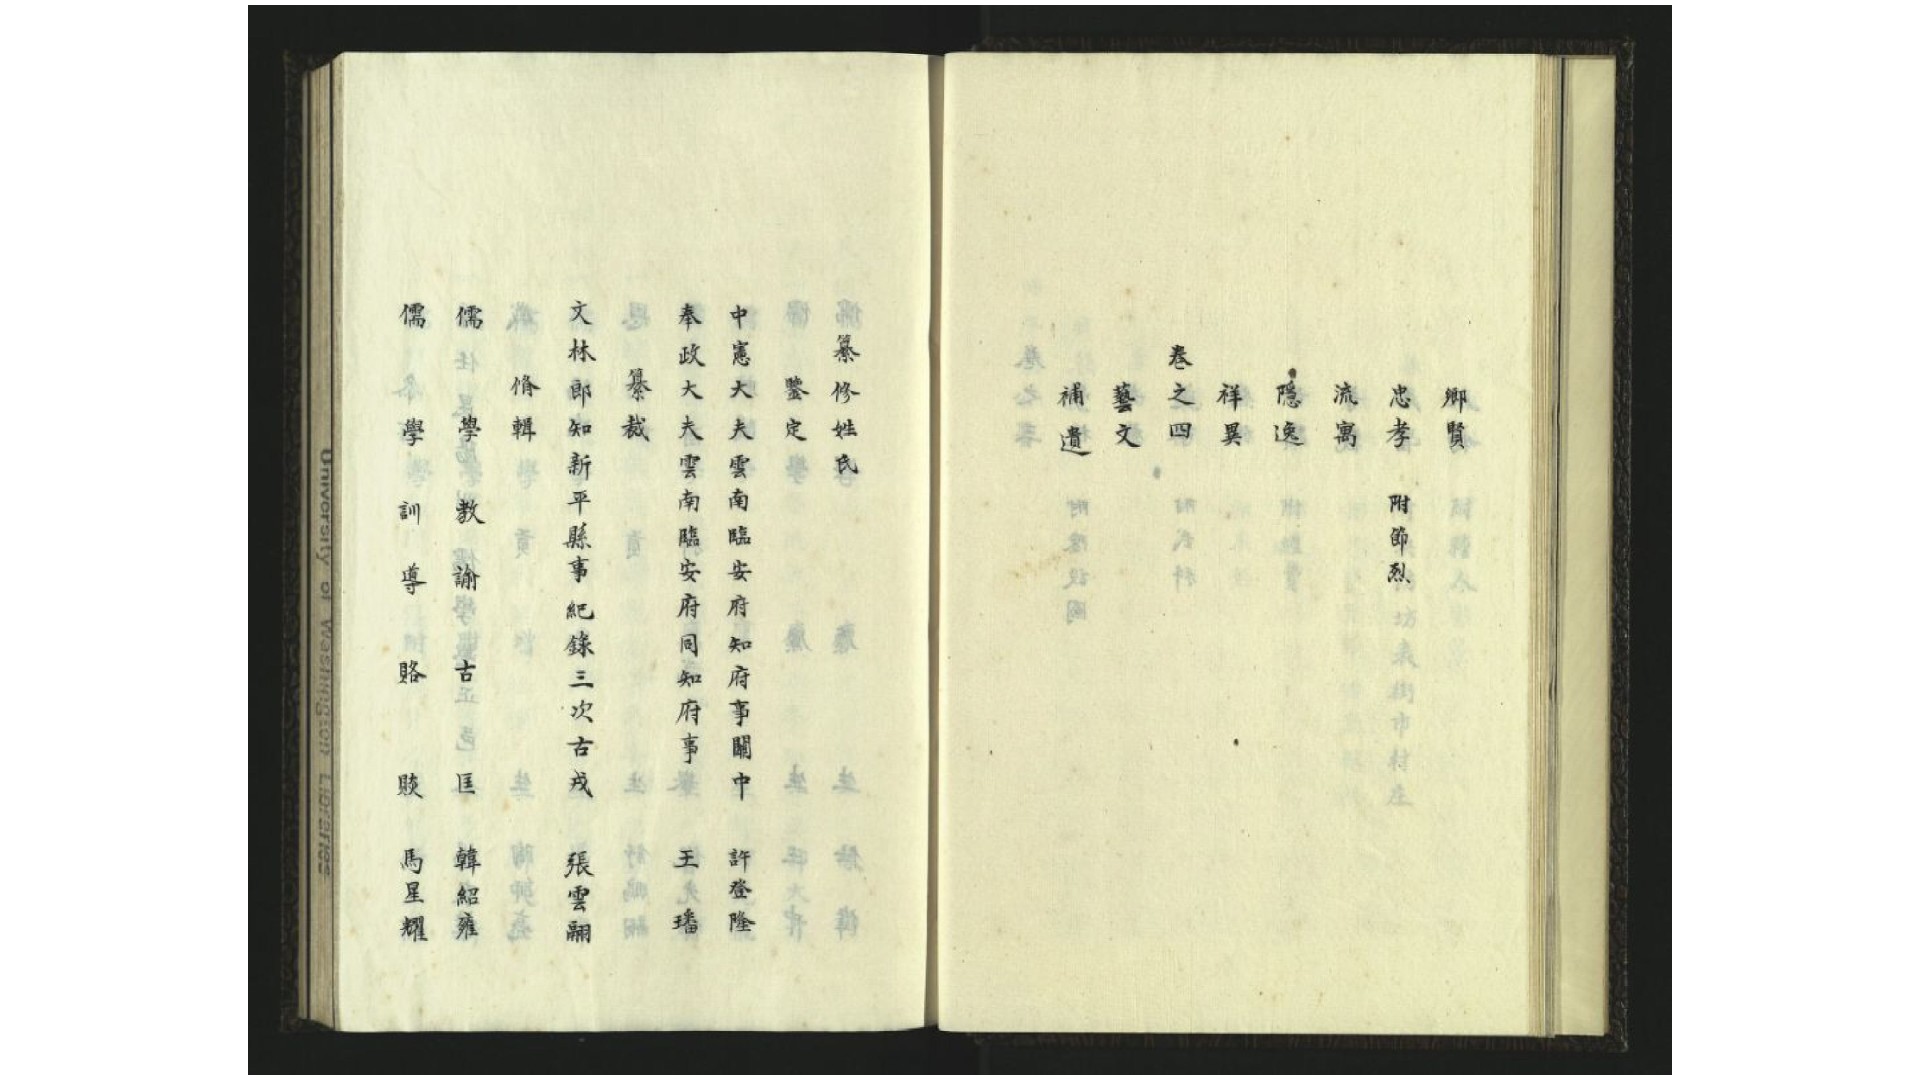 鄉賢
忠孝 附節烈
流寓
隱逸
祥異
卷之四
藝文
補遺
纂修姓氏
鑒定
中憲大夫雲南臨安府知府事關中 許登隆
奉政大夫雲南臨安府同知府事 王璠
纂裁
文林郎知新平縣事紀錄三次古戎 張雲翮
脩輯
儒學教諭古匡 韓紹雍
儒學訓導賂賧 馬星耀
University of Washington Libraries